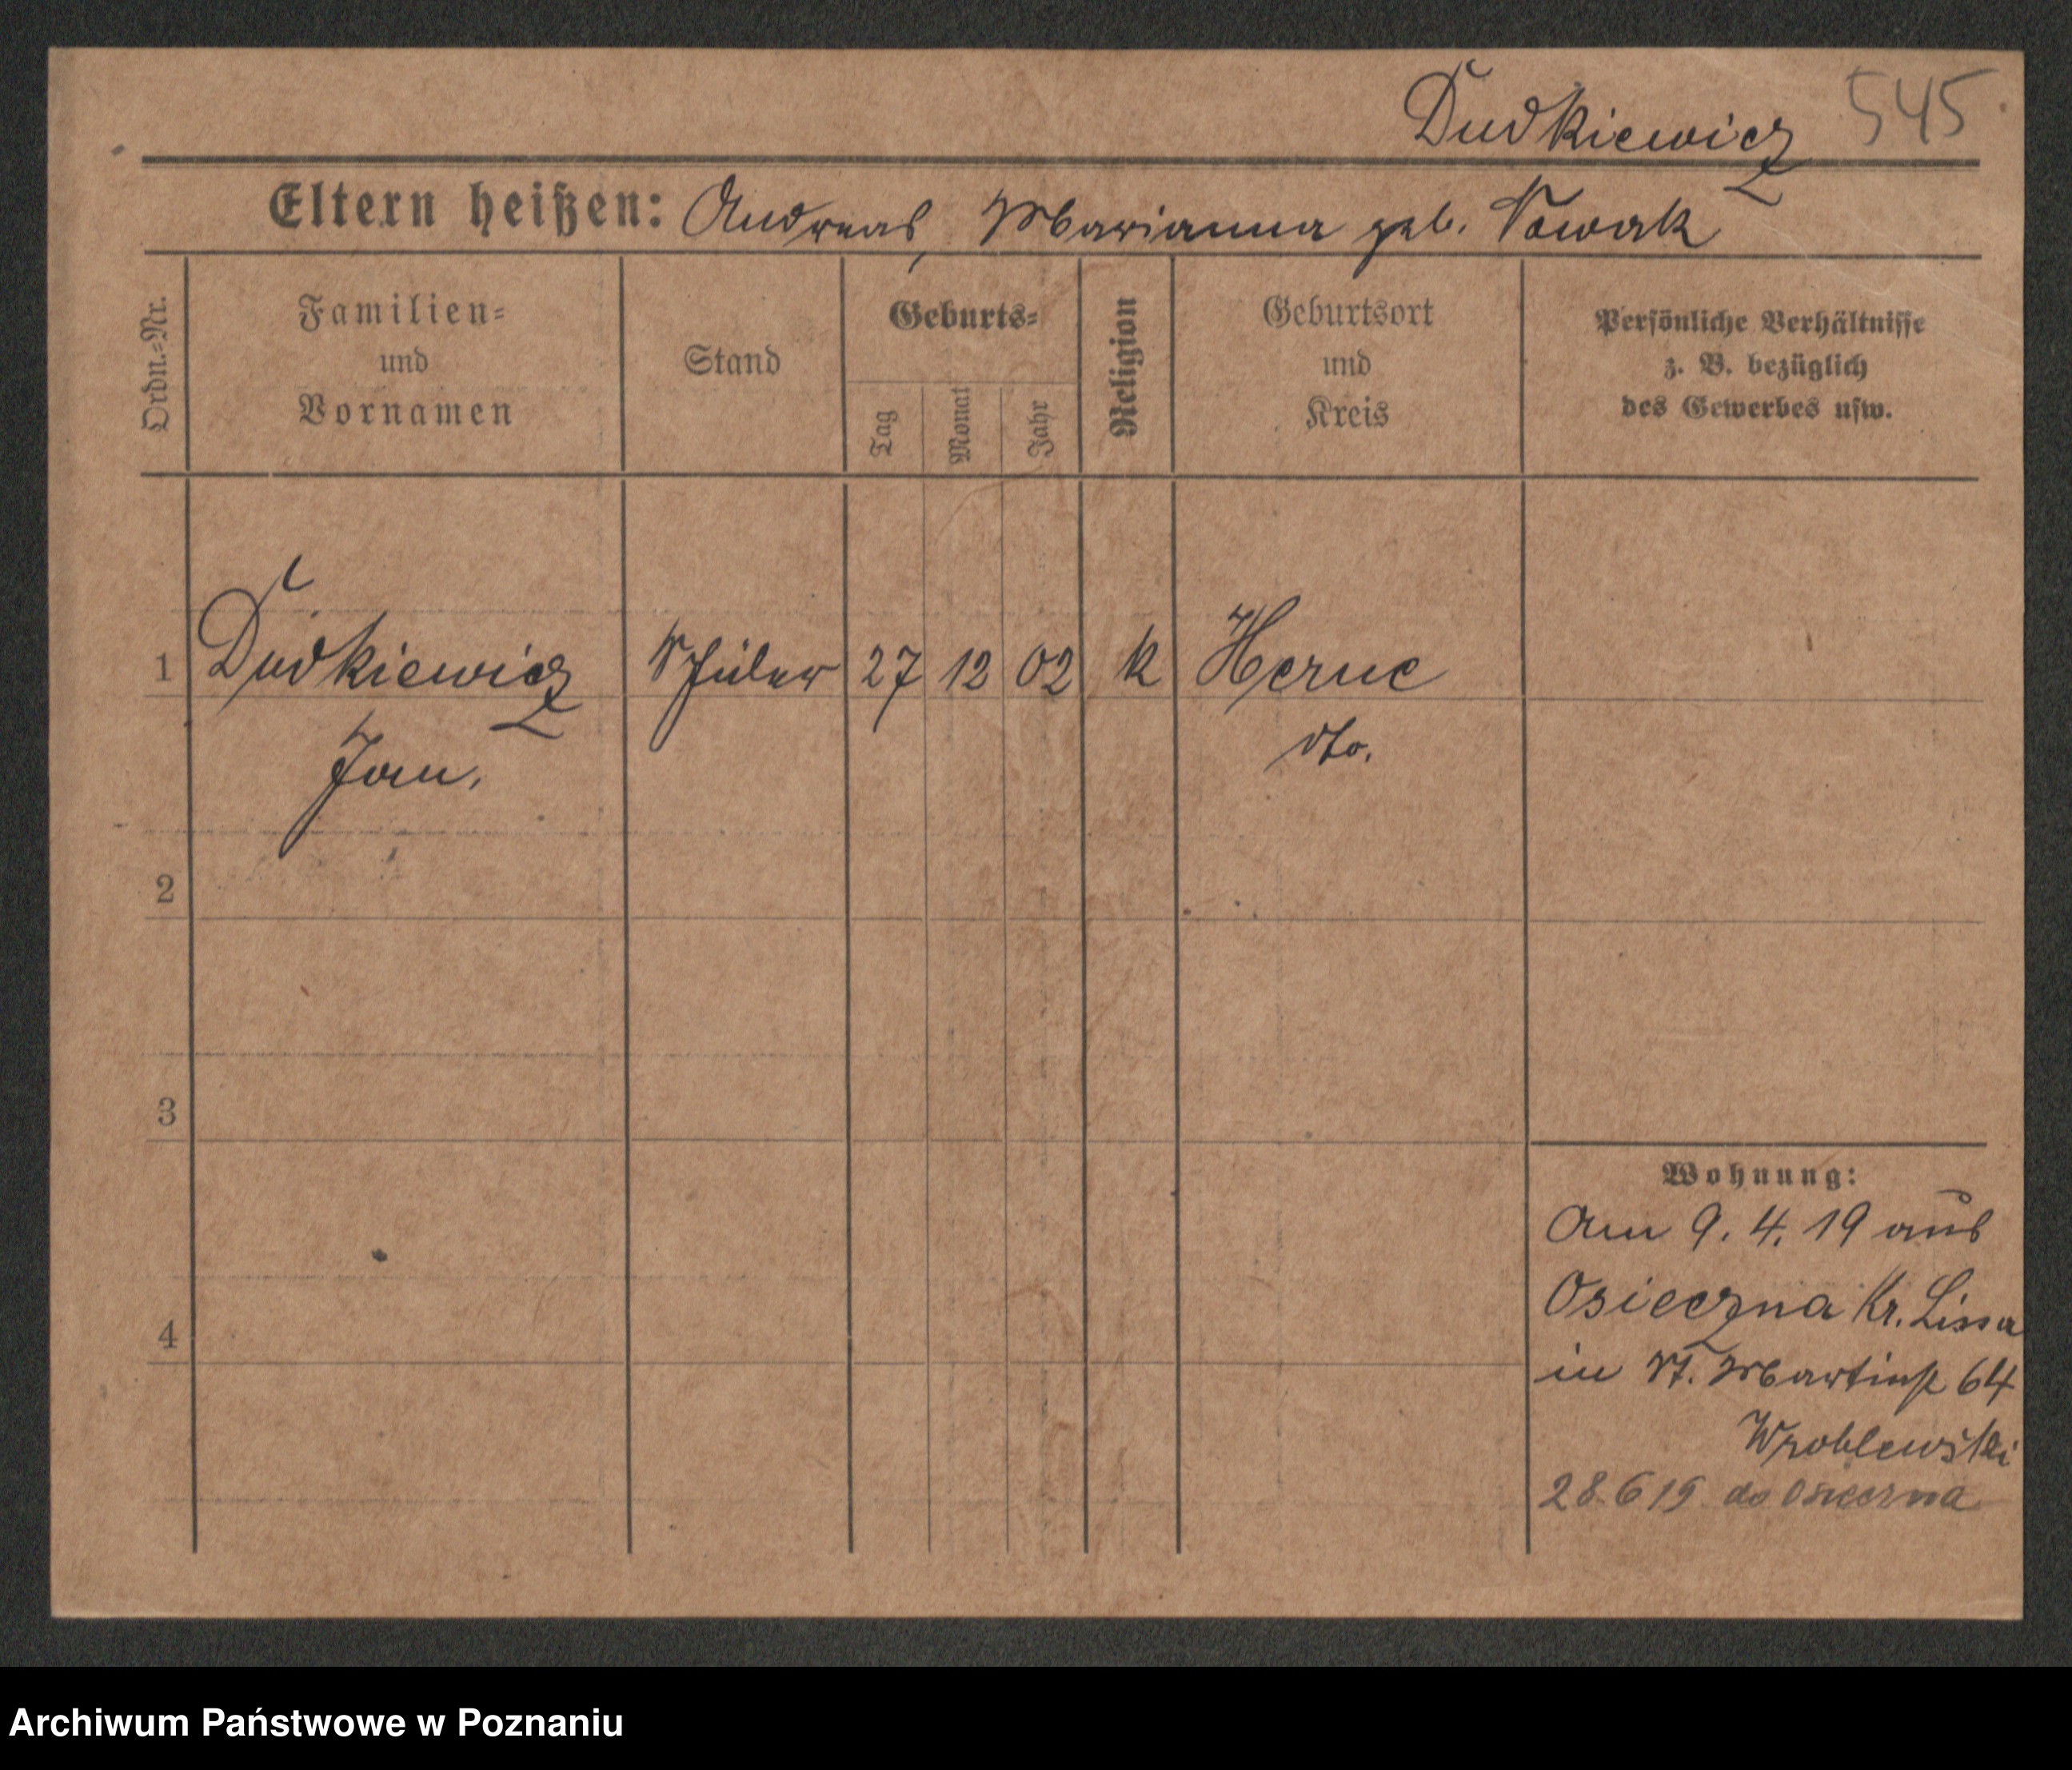 Dudkiewicz 545
Eltern heißen: Andreas, Marianna geb. Nowak
Ordn.-Nr.
Familien-
und
Vornamen
Stand
Geburts-
Tag
Monat
Jahr
Religion
Geburtsort
und
Kreis
Persönliche Verhältnisse
z. B. bezüglich
des Gewerbes usw.
1 Dudkiewicz Schüler 27 12 02 k Herne
Jan. dto.
2
3
4
Wohnung:
Am 9. 4. 19 aus
Osieczna Kr. Lissa
in St. Martinstr 64
Wroblewski
28 6 19 do Osieczna
Archiwum Państwowe w Poznaniu